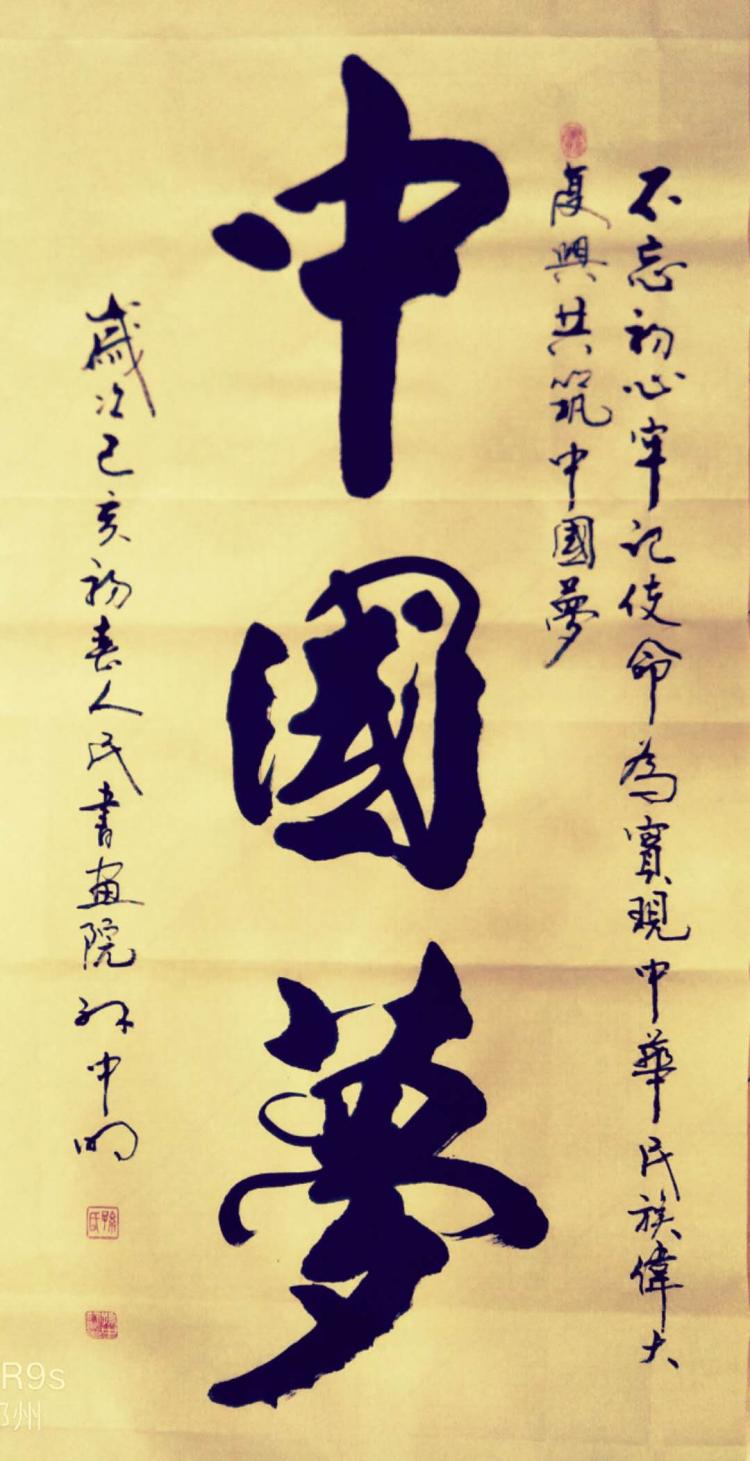 不忘初心牢记使命為實現中華民族偉大
復興共筑中國夢
中國夢
歲次己亥初春人民書画院孙中明
R9s
州